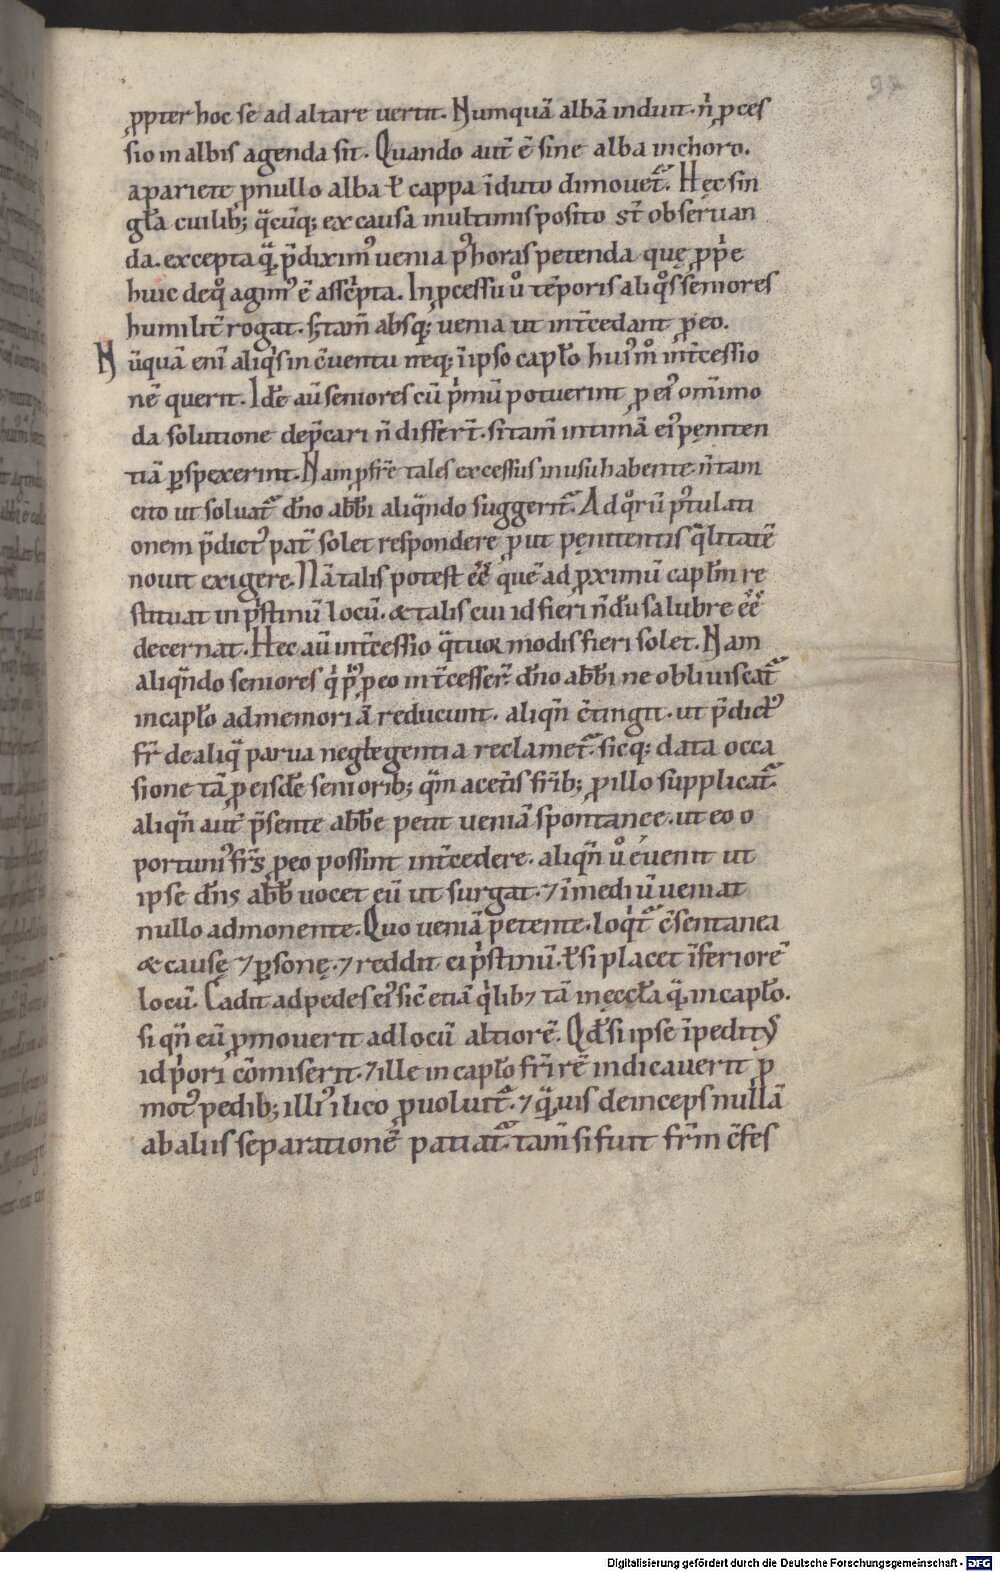 ꝓpter hoc se ad altare vertit. Numquā albā induit. n̄ ꝓces
sio in albis agenda sit. Quando aut̄ ē sine alba in choro.
a pariete ꝓ nullo alba ł cappa īduto dimouet᷑. Hęc sin
gła cuilib; q̄cūq; ex causa in ultimis posito st̄ obseruan
da. excepta q̄ p̄diximꝰ uenia ꝑ horas petenda quę ꝓp̄e
huic de q̊ agimꝰ ē ascͥpta. In ꝓcessu ů tēporis aliq̊s seniores
humilit̄ rogat. s; tam̄ absq; uenia ut int̄cedant ꝓ eo.
Nūquā eni aliqͥs in c̄uentu neq; ī ipso capło husͥmͦ int̄cessio
nē querit. Idē aū seniores cū pͥmū potuerint ꝓ eiꝰ om̄imo
da solutione dep̄cari n̄ differt̄. si tam̄ intimā eiꝰ pęniten
tiā ꝑspexerint. Nam ꝓ fr̄e tales excessus in usu habente. n̄ tam
cito ut soluat᷑ dn̄o abb̄i aliq̄ndo suggerit᷑. Ad q̊rū pͦtulati
onem p̄dictꝰ pat̄ solet respondere ꝓut pęnitentis q̄litatē
nouit exigere. Nā talis potest ēē quē ad ꝓximū capłm re
stituat in pͥstinū locū. & talis cui id fieri n̄dū salubre ēē
decernat. Hec aū int̄cessio q̄tuoꝝ modis fieri solet. Nam
aliq̄ndo seniores qͥ pͥꝰ ꝓ eo int̄cesser̄. dn̄o abb̄i ne obliuiscat᷑
in capło ad memoriā reducunt. aliqn̄ c̄tingit. ut p̄dictꝰ
fr̄ de aliq̄ parua neglegentia reclamet᷑. sicq; data occa
sione tā ꝓ eisdē seniorib; q̄m a cet̄is fr̄ib; ꝓ illo supplicat᷑.
aliqn̄ aut̄ p̄sente abb̄e petit ueniā spontanee. ut eo o
portuniꝰ fr̄s ꝓ eo possint int̄cedere. aliqn̄ ů euenit ut
ipse dn̄s abb̄ uocet eū ut surgat. ⁊ ī mediū ueniat
nullo admonente. Quo ueniā petente. loqͥt᷑ c̄sentanea
& causę ⁊ ꝑsonę. ⁊ reddit ei pͥstinū. ł si placet īferiorē
locū. Cadit ad pedes eiꝰ sic̄ etiā qͥlib⁊ tā in ęccła q̄ in capło.
si qn̄ eū ꝓmouerit ad locū altiorē. Qd̄ si ipse īpeditꝰ
id pͥori cōmiserit. ⁊ ille in capło fr̄i rē indicauerit ꝓ
motꝰ pedib; illiꝰ ilico ꝓuoluit᷑. ⁊ q̄uis deinceps nullā
ab aliis separationē patiat᷑. tam̄ si fuit fr̄m c̄fes
Digitalisierung gefördert durch die Deutsche Forschungsgemeinschaft - DFG